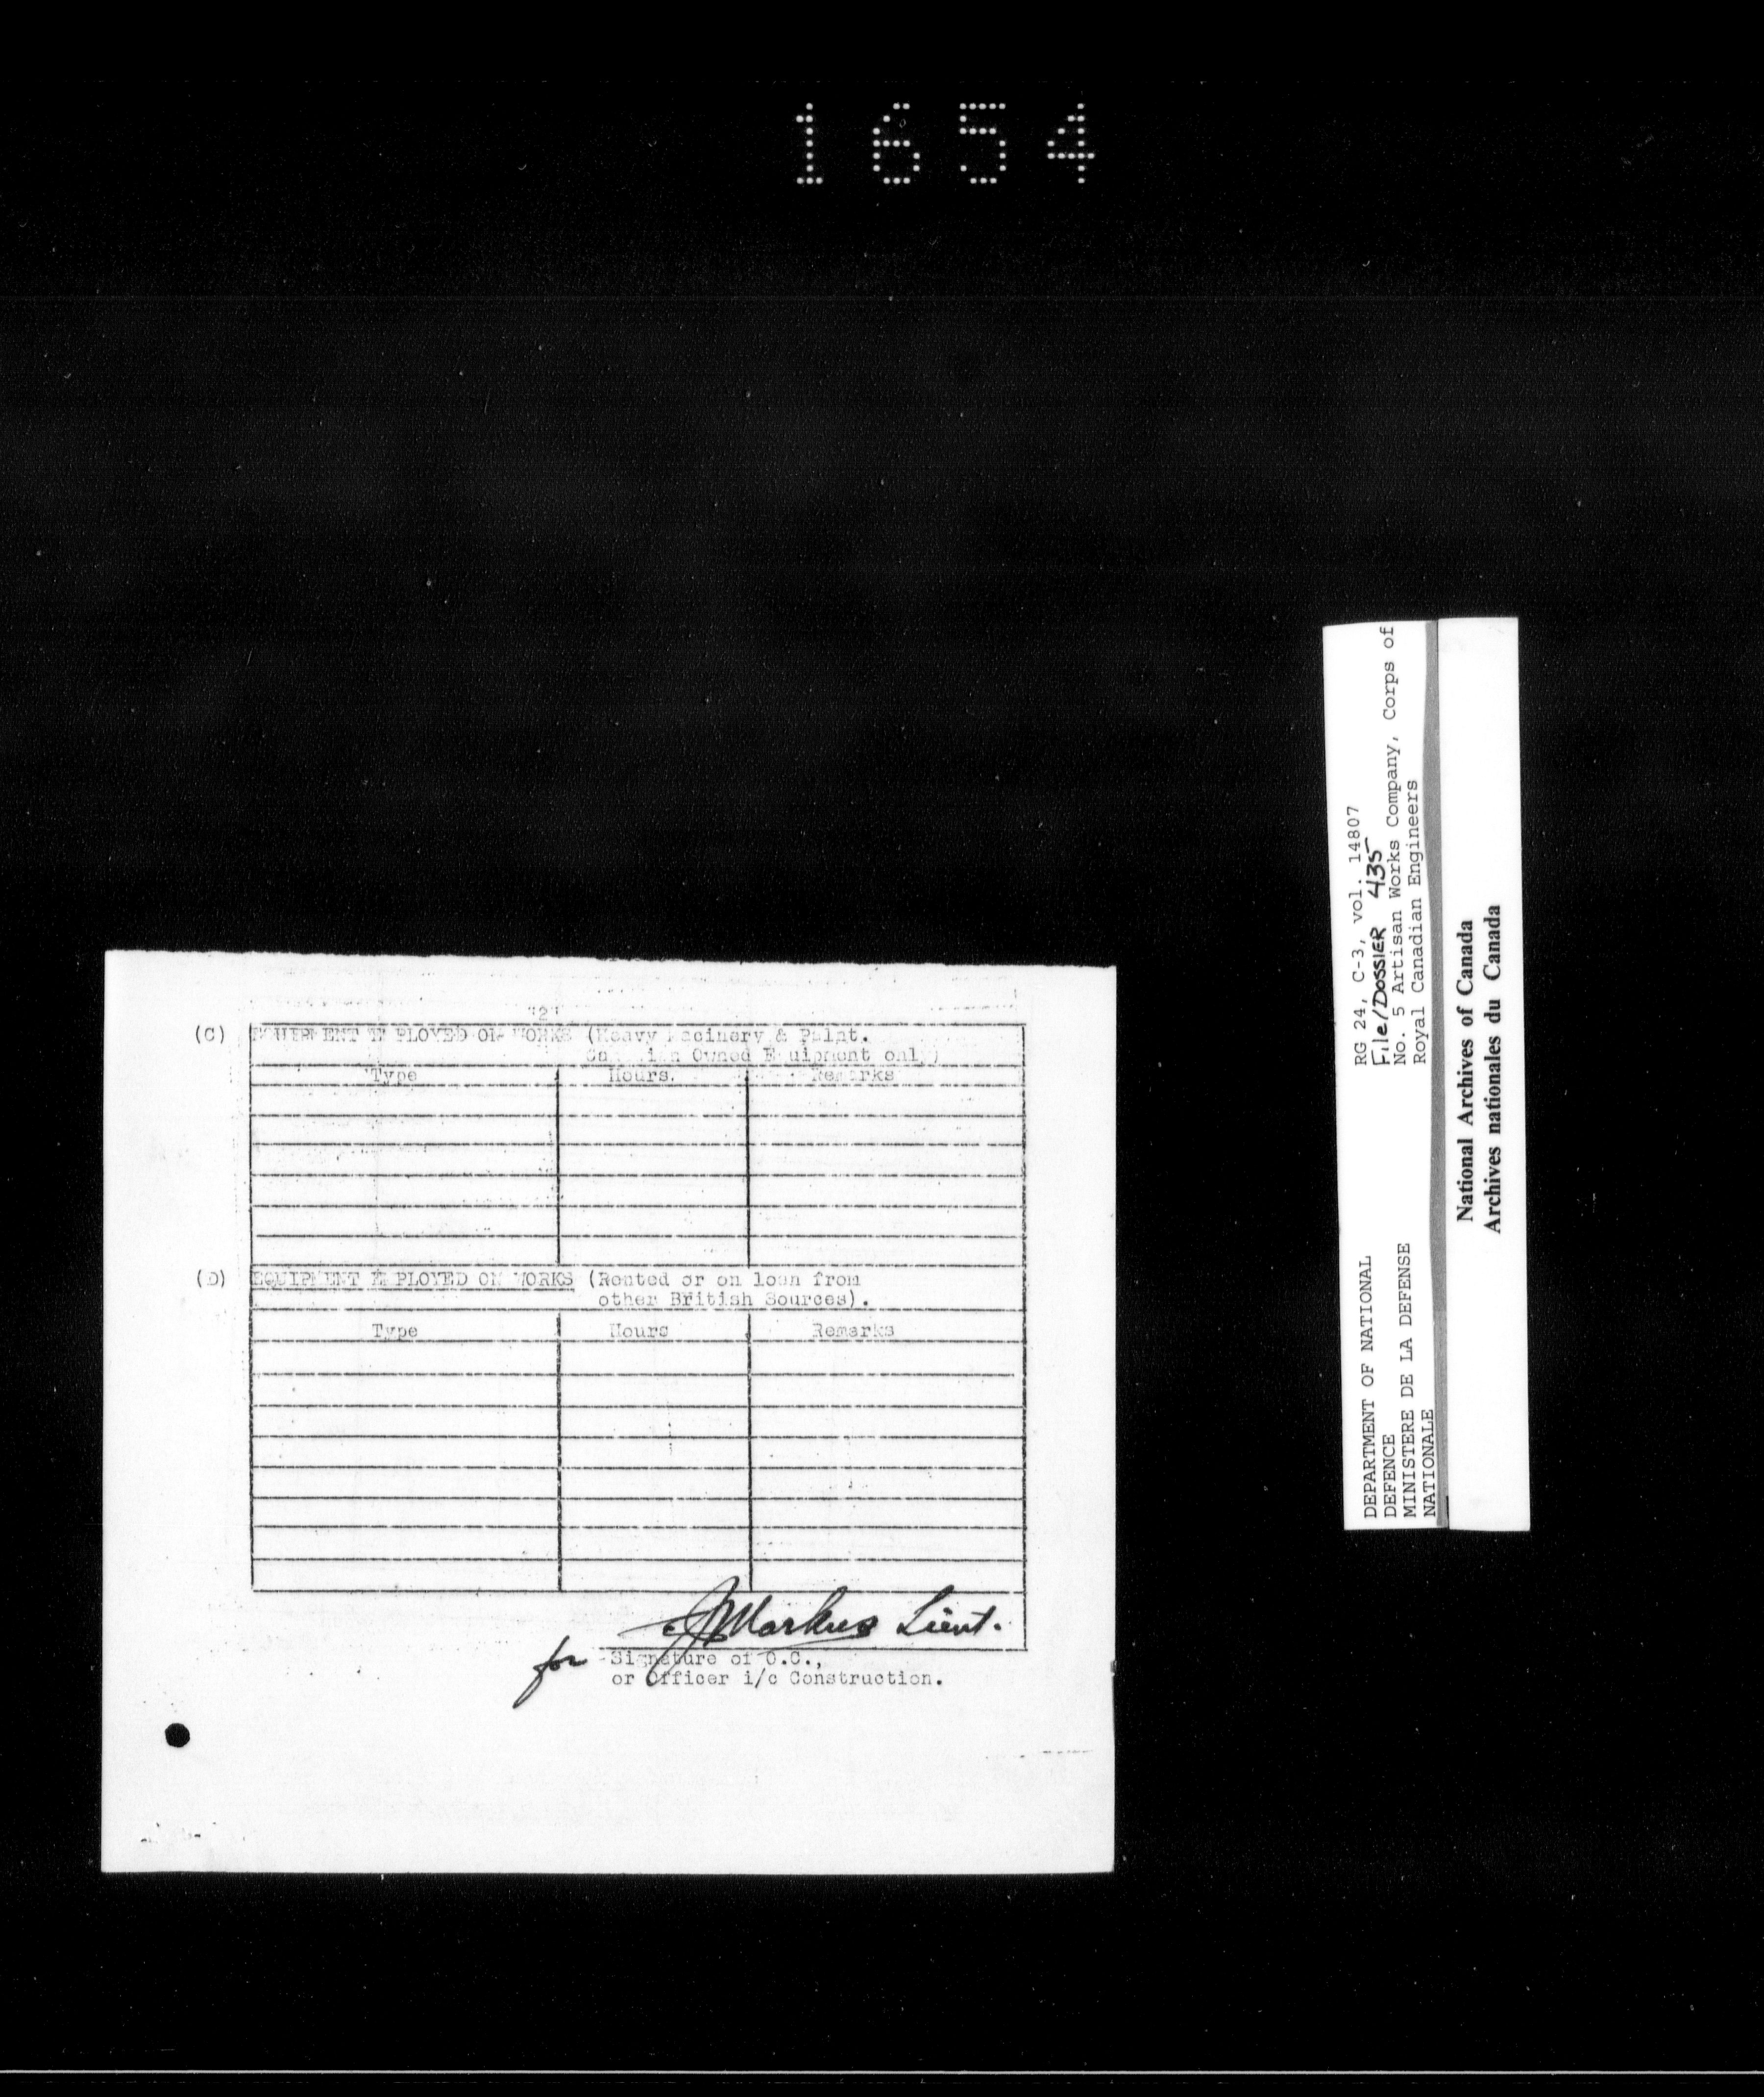 1654
"2"
(C) EQUIPMENT EMPLOYED ON WORKS (Heavy Macinery & Palnt.
Canadian Owned Equipment only)
Type Hours. Remarks
(D) EQUIPMENT EMPLOYED ON WORKS (Rented or on loan from
other British Sources).
Type Hours Remarks
Markus Lieut.
for Signature of O.C.,
or Officer i/c Construction.
RG 24, C-3, vol. 14807
File/DOSSIER 435
No. 5 Artisan Works Company, Corps of
Royal Canadian Engineers
DEPARTMENT OF NATIONAL
DEFENCE
MINISTERE DE LA DEFENSE
NATIONALE
National Archives of Canada
Archives nationales du Canada